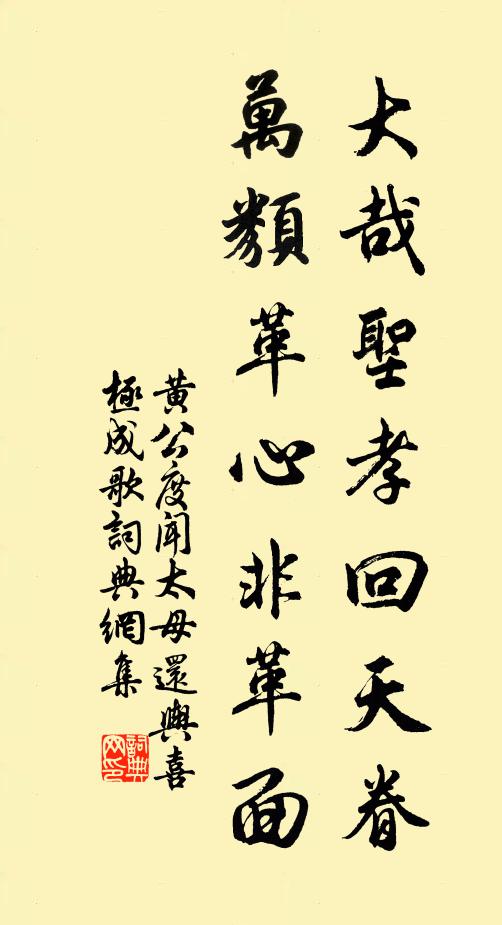 大哉聖孝回天眷
萬類革心非革面
黄公度聞太母還輿喜
極成歌詞典網集
詞典
网印